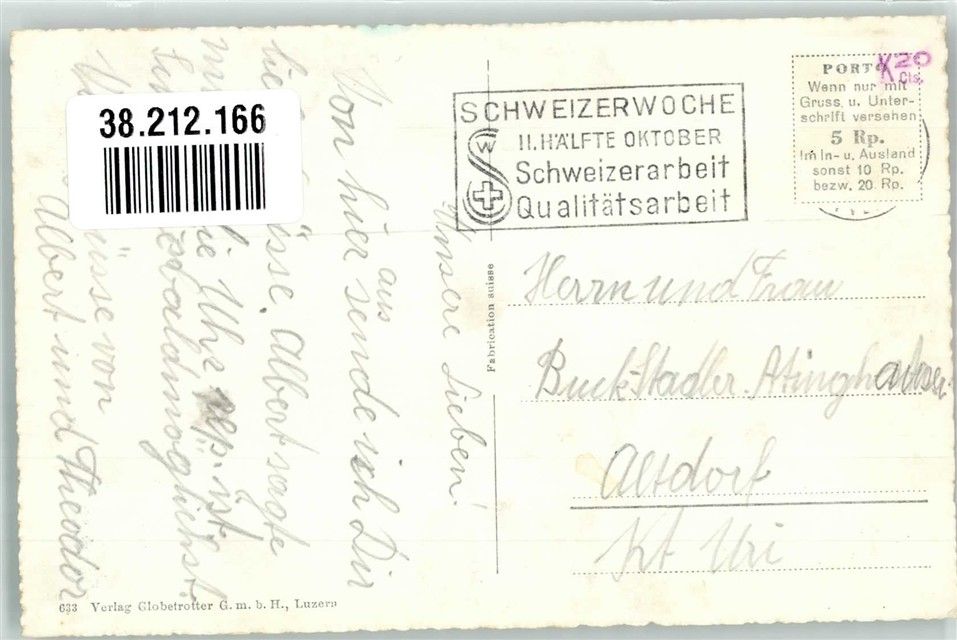 38.212.166
SCHWEIZERWOCHE
II. HÄLFTE OKTOBER
Schweizerarbeit
Qualitätsarbeit
W
PORTO
Wenn nur mit
Gruss, u. Unter-
schrift versehen
5 Rp.
Im In- u. Ausland
sonst 10 Rp.
bezw. 20 Rp.
K20
Cts.
Unsere Lieben!
Von hier aus sende ich Dir
Grüsse. Albert sagte
die Uhr rep. ist
baldmöglichst.
Grüsse von
Albert und Theodor
Fabrication suisse
Herrn und Frau
Buck-Stadler. Atinghausen
Altdorf
Kt Uri
633 Verlag Globetrotter G. m. b. H., Luzern